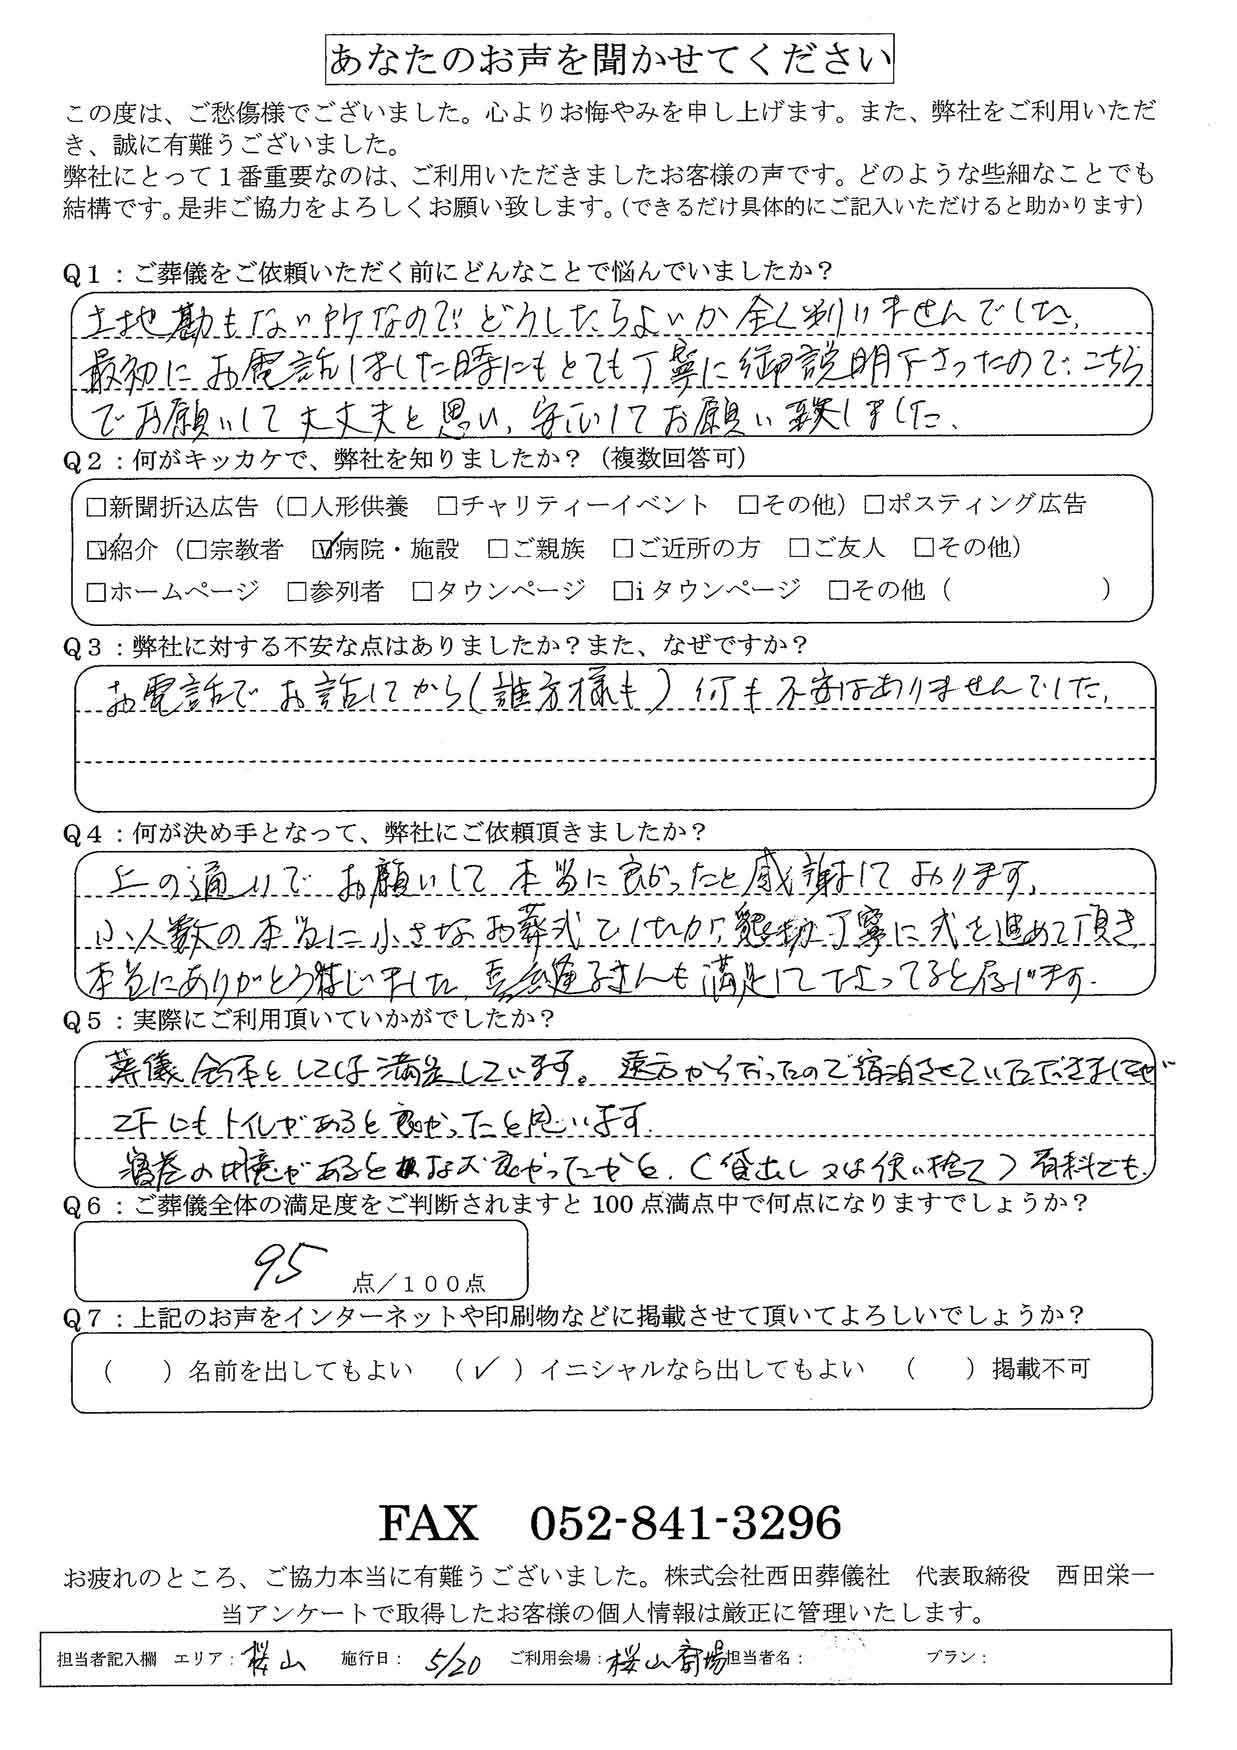 あなたのお声を聞かせてください
この度は、ご愁傷様でございました。心よりお悔やみを申し上げます。また、弊社をご利用いただ
き、誠に有難うございました。
弊社にとって1番重要なのは、ご利用いただきましたお客様の声です。どのような些細なことでも
結構です。是非ご協力をよろしくお願い致します。(できるだけ具体的にご記入いただけると助かります)
Q1:ご葬儀をご依頼いただく前にどんなことで悩んでいましたか?
土地勘もない所なのでどうしたらよいか全く判りませんでした。
最初にお電話しました時にもとても丁寧に御説明下さったので、こちら
でお願いして大丈夫と思い、安心してお願い致しました。
Q2:何がキッカケで、弊社を知りましたか?(複数回答可)
□新聞折込広告(□人形供養 □チャリティーイベント □その他)□ポスティング広告
☑紹介(□宗教者 ☑病院・施設 □ご親族 □ご近所の方 □ご友人 □その他)
□ホームページ □参列者 □タウンページ □iタウンページ □その他( )
Q3:弊社に対する不安な点はありましたか?また、なぜですか?
お電話でお話してから(誰方様も)何も不安はありませんでした。
Q4:何が決め手となって、弊社にご依頼頂きましたか?
上の通りでお願いして本当に良かったと感謝しております。
小人数の本当に小さなお葬式でしたが、懇切丁寧に式を進めて頂き
本当にありがとう存じました。さんも満足してなさってると存じます。
Q5:実際にご利用頂いていかがでしたか?
葬儀全体としては満足しています。遠方からだったので宿泊させていただきましたが
2Fにもトイレがあると良かったと思います。
寝巻の用意があるとなお良かったかと。(貸出し又は使い捨て)有料でも。
Q6:ご葬儀全体の満足度をご判断されますと100点満点中で何点になりますでしょうか?
95 点/100点
Q7:上記のお声をインターネットや印刷物などに掲載させて頂いてよろしいでしょうか?
( )名前を出してもよい (✓)イニシャルなら出してもよい ( )掲載不可
FAX 052-841-3296
お疲れのところ、ご協力本当に有難うございました。株式会社西田葬儀社 代表取締役 西田栄一
当アンケートで取得したお客様の個人情報は厳正に管理いたします。
担当者記入欄 エリア:桜山 施行日:5/20 ご利用会場:桜山斎場 担当者名: プラン: